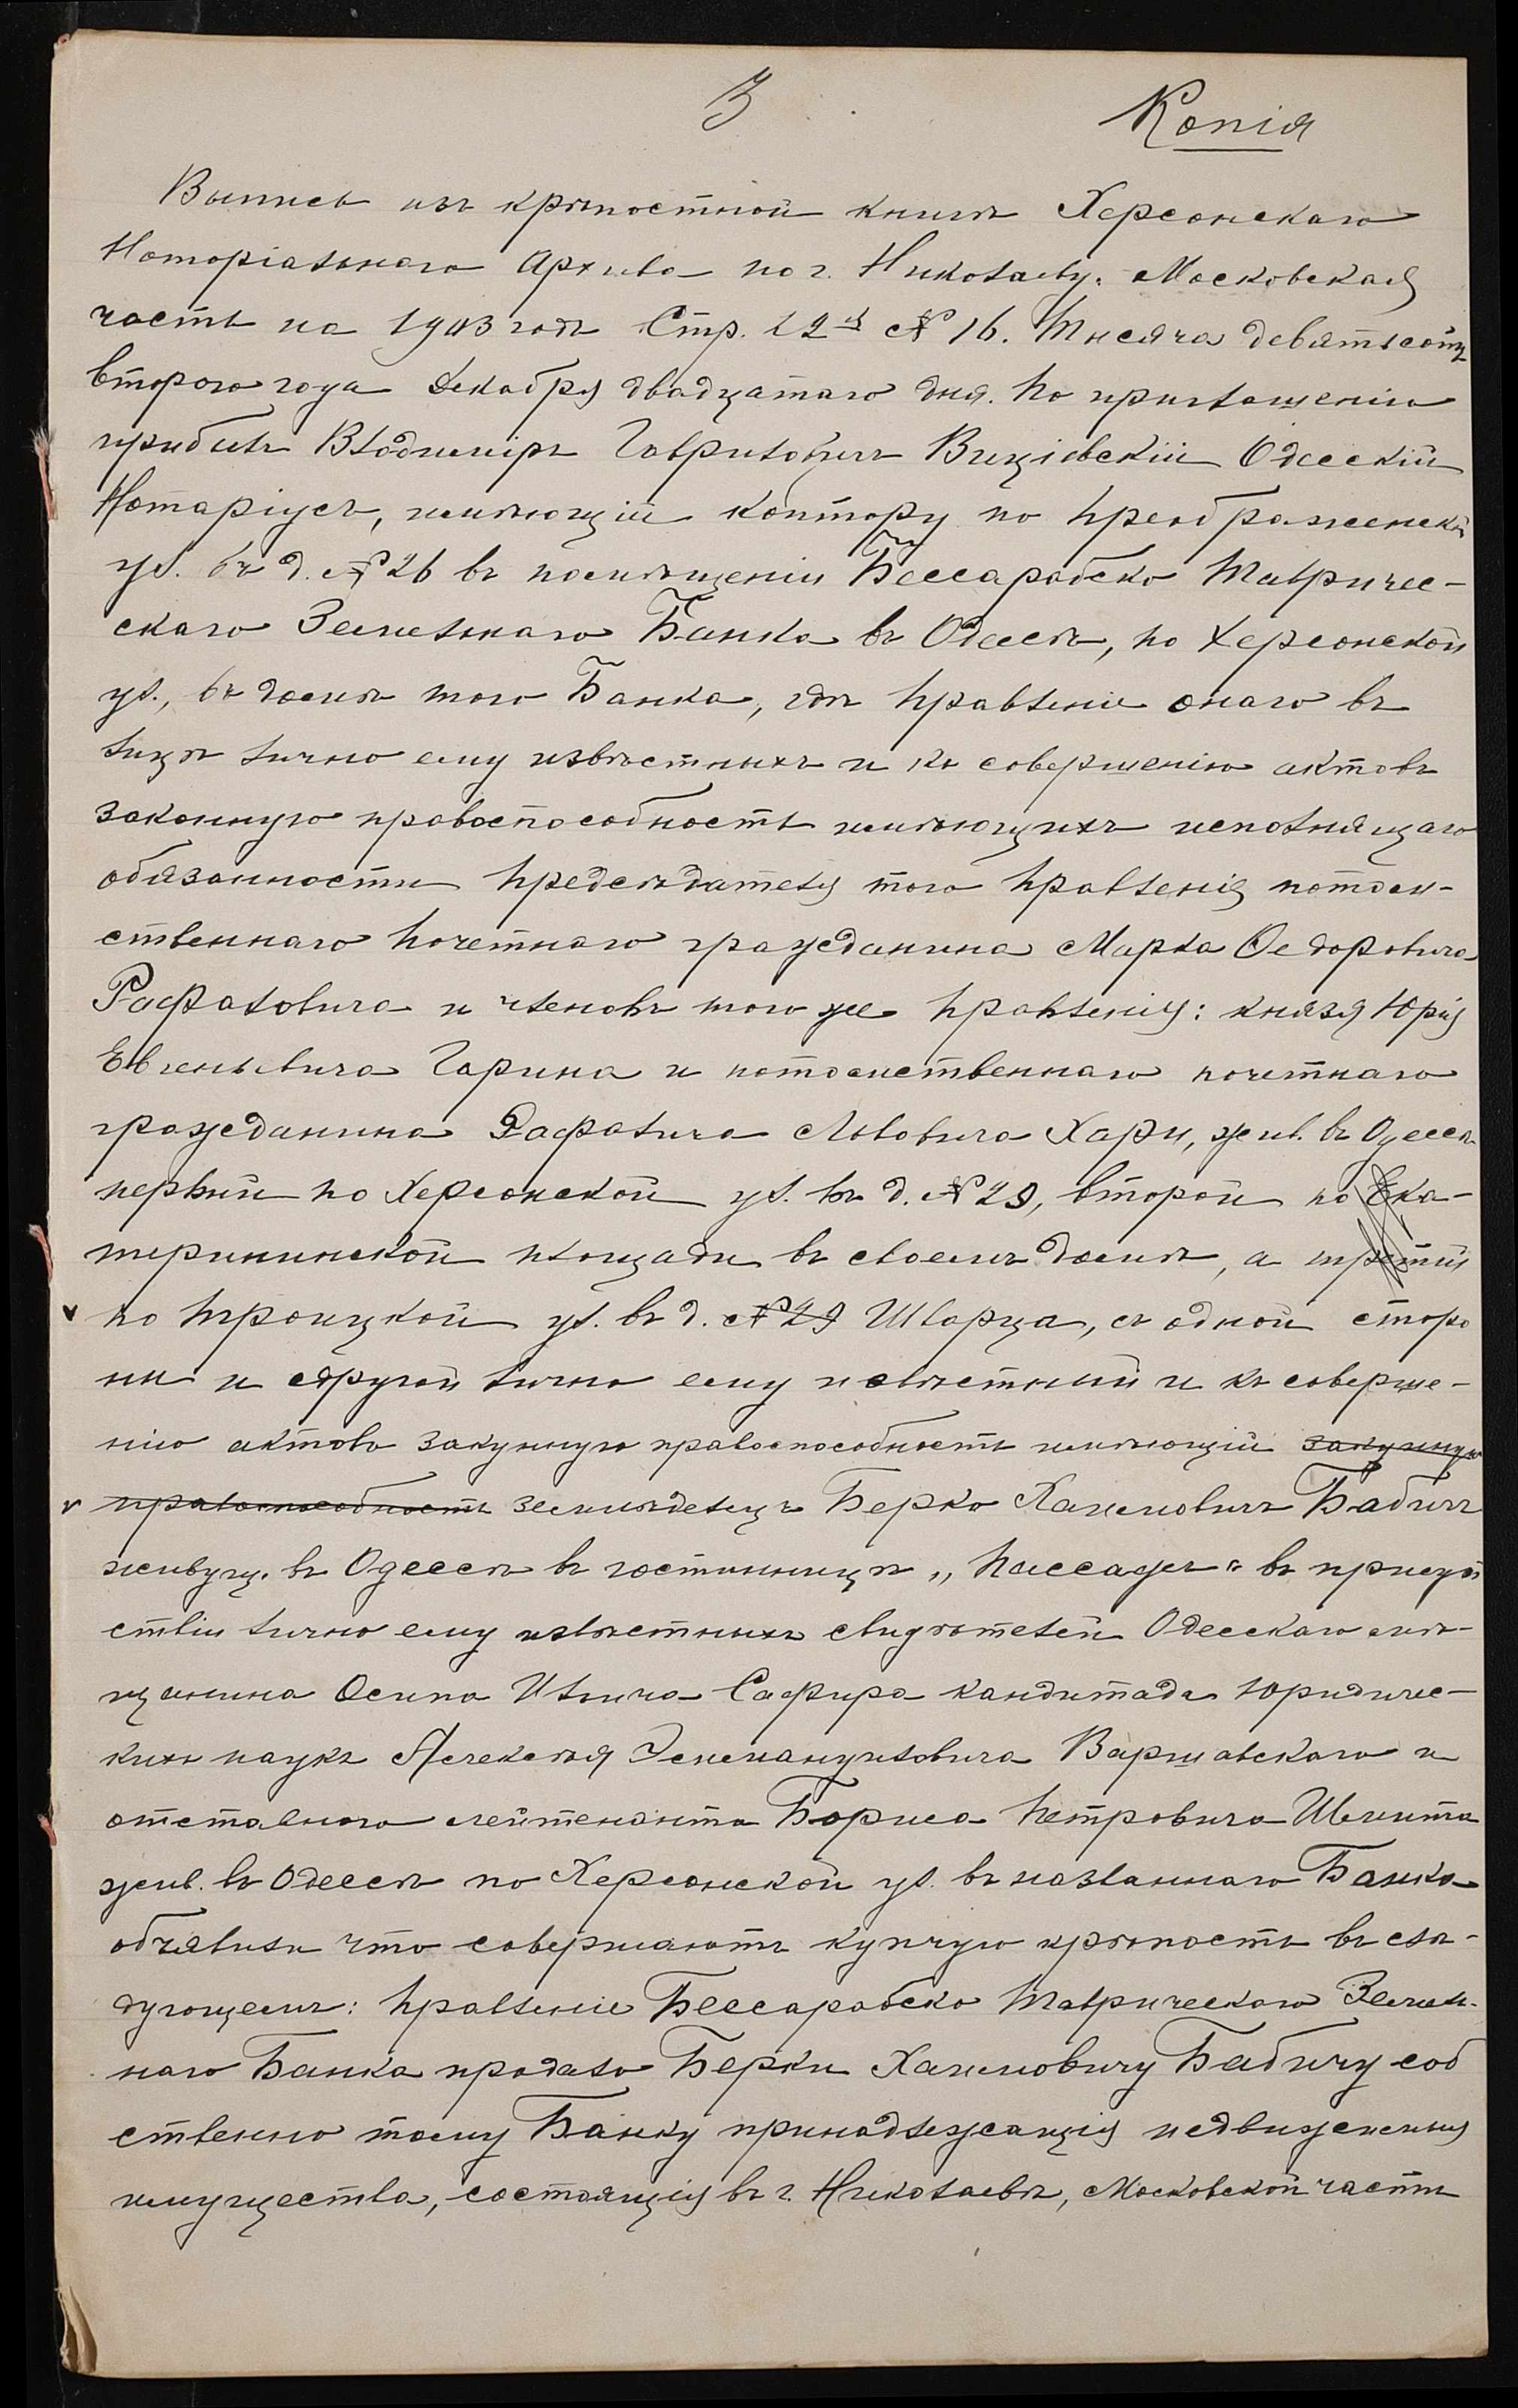 3
Копія
Выпись изъ крѣпостной книги Херсонскаго
Нотаріальнаго Архива по г. Николаеву. Московская
часть на 1903 годъ Стр. 12 № 16. Тысяча девятьсотъ
второго года Декабря двадцатаго дня. По приглашенію
прибылъ Владиміръ Гавриловичъ Одесскій
Нотаріусъ, имѣющій контору по Преображенской
ул. въ д. № 26 въ помѣщеніи Бессарабско Тавричес-
скаго Земельнаго Банка въ Одессѣ, по Херсонской
ул., въ домѣ того Банка, гдѣ Правленіе онаго въ
лицѣ лично ему извѣстныхъ и къ совершенію актовъ
законную правоспособность имѣющихъ исполнящаго
обязанности Предсѣдателя того Правленія потом-
ственнаго Почетнаго гражданина Марка Ѳедоровича
Рафаловича и членовъ того же Правленія: князя Юрія
Евгеньевича Гарина и потомственнаго почетнаго
гражданина Львовича Хари, жив. въ Одессѣ
первый по Херсонской ул. въ д. № 29, второй по Ека-
терининской площади въ своемъ домѣ, а третій
по Троицкой ул. въ д. № 29 Шварца, съ одной сторо
ны и съ другой лично ему извѣстный и къ соверше-
нію актовъ закунную правоспособность имѣющій закунную
правоспособность земледѣлецъ Берко Хаимовичъ Бабичъ
живущ. въ Одессѣ въ гостинницѣ „Пассажъ" въ присут
ствіи лично ему извѣстныхъ свидѣтелей Одесскаго мѣ-
щанина Осипа Ильича Сафира кандитада Юридичес-
кихъ наукъ Алексѣя Эммануиловича Варшавскаго и
отставного лейтенанта Бориса Петровича Шмита
жив. въ Одессѣ по Херсонской ул. въ названнаго Банка
объявили что совершаютъ купчую крѣпость въ слѣ-
дующемъ: Правленіе Бессарабско Таврическаго Земель-
наго Банка продало Берки Хаимовичу Бабичу соб
ственно тому Банку принадлежащія недвижимыя
имущества, состоящія въ г. Николаевѣ, Московской части